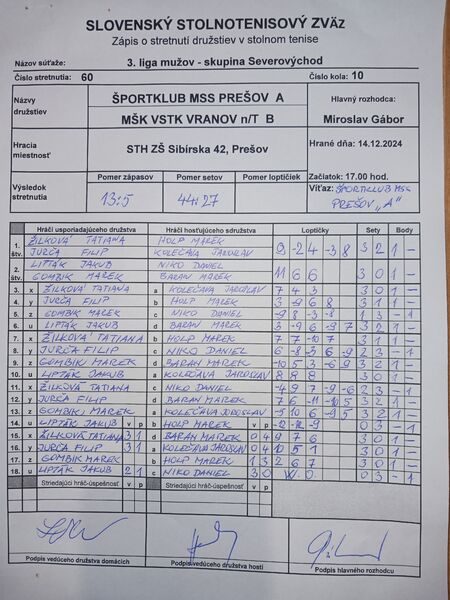 SLOVENSKÝ STOLNOTENISOVÝ ZVÄZ
Zápis o stretnutí družstiev v stolnom tenise
Názov súťaže: 3. liga mužov - skupina Severovýchod
Číslo stretnutia: 60 Číslo kola: 10
Názvy družstiev
ŠPORTKLUB MSS PREŠOV A
MŠK VSTK VRANOV n/T B
Hlavný rozhodca:
Miroslav Gábor
Hracia miestnosť
STH ZŠ Sibírska 42, Prešov
Hrané dňa: 14.12.2024
Začiatok: 17.00 hod.
Výsledok stretnutia
Pomer zápasov Pomer setov Pomer loptičiek
13:5 44:27
Víťaz: ŠPORTKLUB MSS
PREŠOV "A"
Hráči usporiadajúceho družstva Hráči hosťujúceho družstva Loptičky Sety Body
1. štv. ŽILKOVÁ TATIANA HOLP MAREK
JURČA FILIP KOLEČÁVA JAROSLAV 9 -2 4 -3 8 3 2 1 -
2. štv. LIPTÁK JAKUB NIKO DANIEL
GOMBIK MAREK BARAN MAREK 11 6 6 3 0 1 -
3. x ŽILKOVÁ TATIANA a KOLEČÁVA JAROSLAV 7 4 3 3 0 1 -
4. y JURČA FILIP b HOLP MAREK 3 -9 6 8 3 1 1 -
5. z GOMBIK MAREK c NIKO DANIEL -9 8 -3 -8 1 3 - 1
6. u LIPTÁK JAKUB d BARAN MAREK 3 -9 6 -9 7 3 2 1 -
7. x ŽILKOVÁ TATIANA b HOLP MAREK 7 7 -10 7 3 1 1 -
8. y JURČA FILIP c NIKO DANIEL 6 -8 3 6 -9 2 3 - 1
9. z GOMBIK MAREK d BARAN MAREK
10. u LIPTÁK JAKUB a KOLEČÁVA JAROSLAV 8 8 8 3 0 1 -
11. x ŽILKOVÁ TATIANA c NIKO DANIEL -4 9 7 -9 -6 2 3 - 1
12. y JURČA FILIP d BARAN MAREK 7 6 -11 -10 5 3 2 1 -
13. z GOMBIK MAREK a KOLEČÁVA JAROSLAV -5 10 6 -9 5 3 2 1 -
14. u LIPTÁK JAKUB v p b HOLP MAREK v p -12 -12 -9 0 3 - 1
15. x ŽILKOVÁ TATIANA 3 1 d BARAN MAREK 0 4 9 7 6 3 0 1 -
16. y JURČA FILIP 3 1 a KOLEČÁVA JAROSLAV 0 4 10 5 1 3 0 1 -
17. z GOMBIK MAREK b HOLP MAREK 1 3 2 6 7 3 0 1 -
18. u LIPTÁK JAKUB 2 1 c NIKO DANIEL 3 0 W.O. 0 3 - 1
Striedajúci hráč/hráči v p Striedajúci hráč/hráči v p
Podpis vedúceho družstva domácich Podpis vedúceho družstva hostí Podpis hlavného rozhodcu